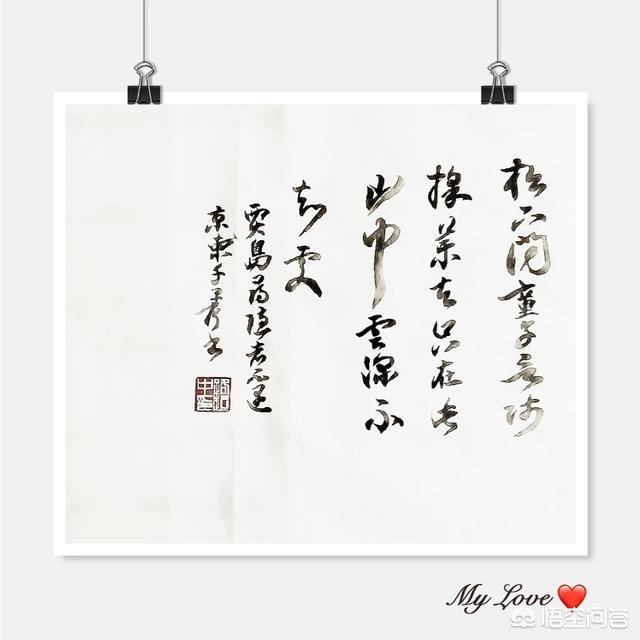 松下問童子言師
採藥去只在此
山中雲深不
知處
賈島尋隱者不遇
京東
My Love❤️
悟空问答